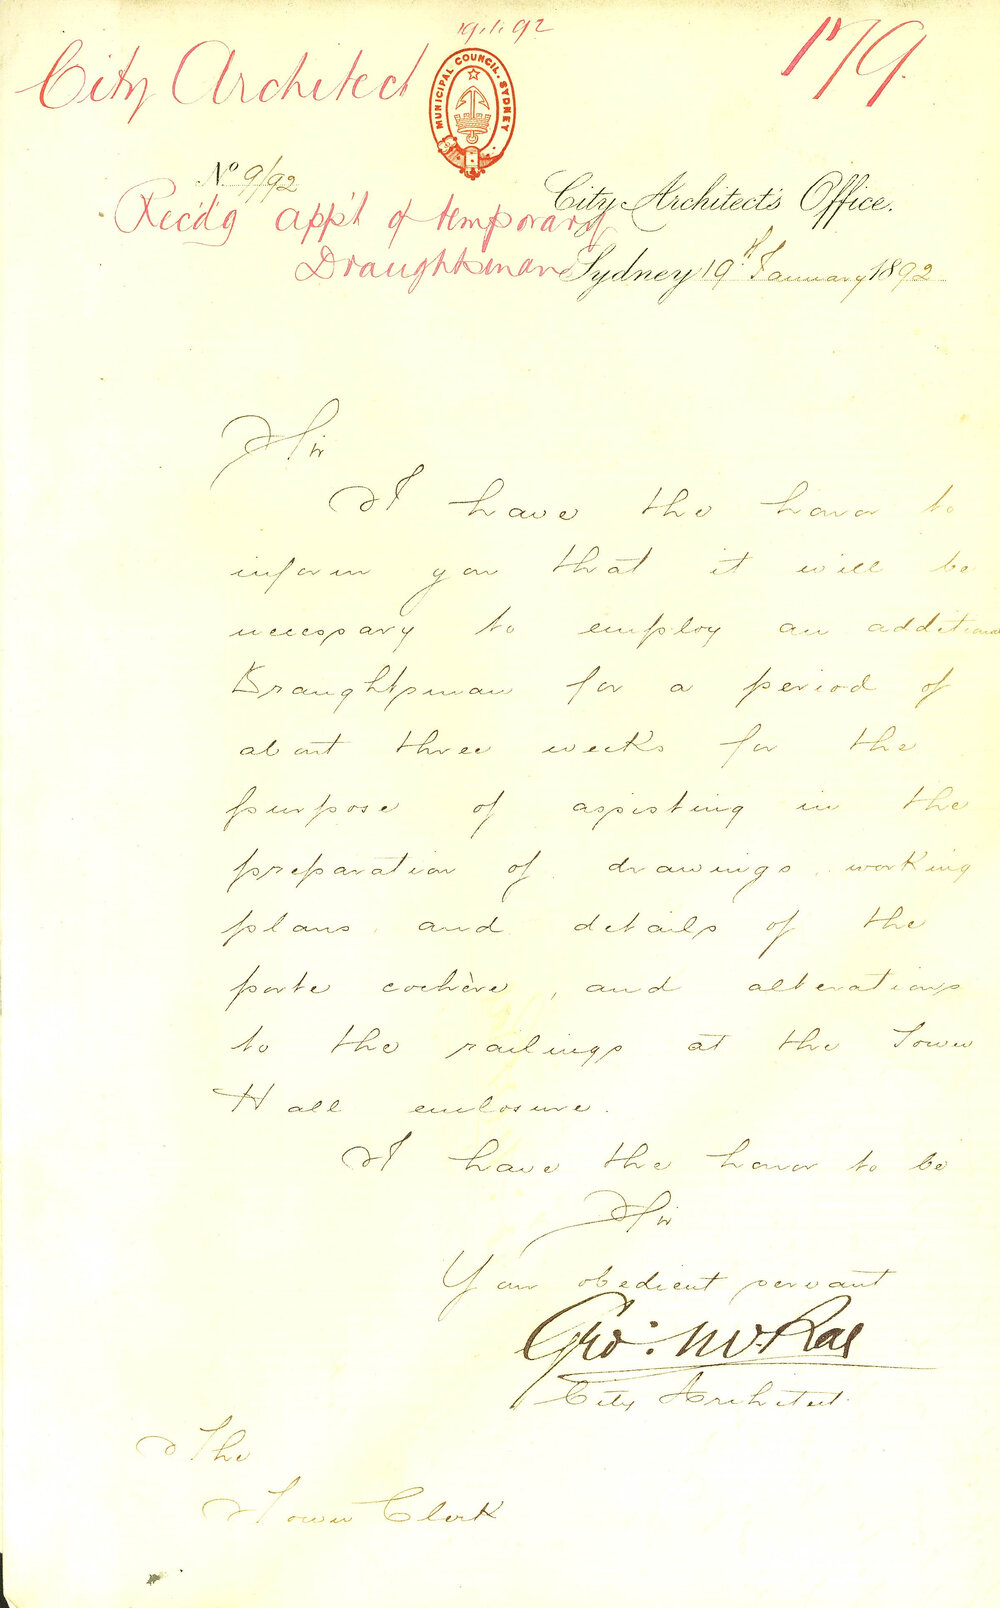 19.1.92
City Architect
179.
MUNICIPAL COUNCIL. SYDNEY
No 9/92
City Architect's Office.
Rec'd'g app't of temporary
Draughtsman
Sydney 19th January 1892
Sir
I have the honor to
inform you that it will be
necessary to employ an additional
Draughtsman for a period of
about three weeks for the
purpose of assisting in the
preparation of drawings, working
plans and details of the
porte cochère, and alterations
to the railings at the Town
Hall enclosure.
I have the honor to be
Sir
Your obedient servant
Geo. McRae
City Architect.
The
Town Clerk